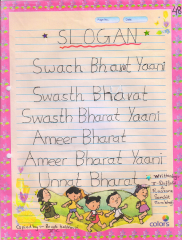 48
SLOGAN
Swach Bharat Yaani
Swasth Bharat
Swasth Bharat Yaani
Ameer Bharat
Ameer Bharat Yaani
Unnat Bharat
colors